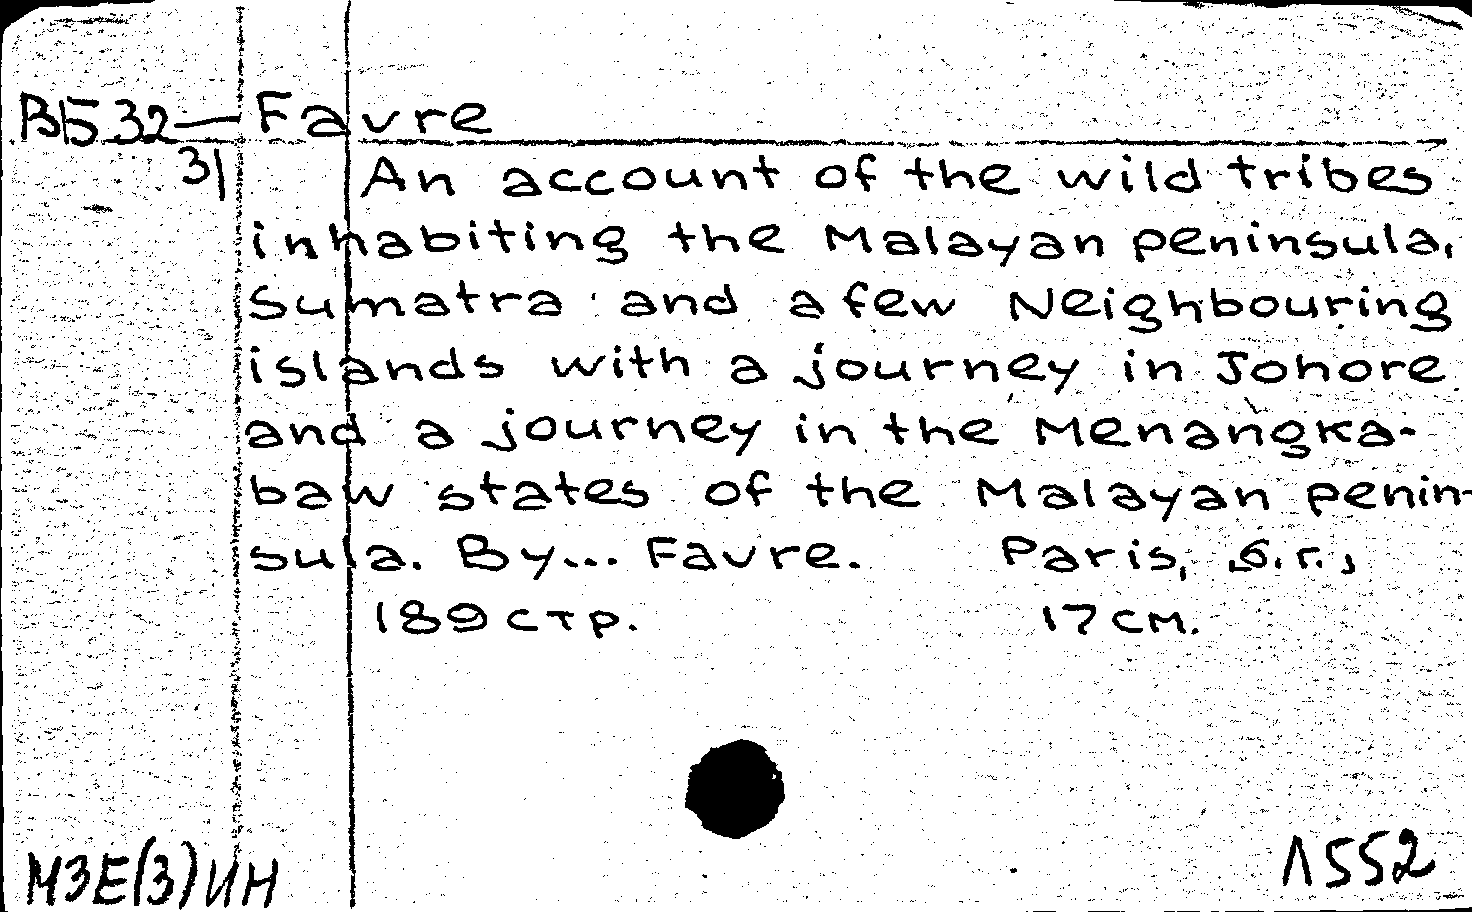 В532— Favre
31 An account of the wild tribes
inhabiting the Malayan peninsula,
Sumatra and a few Neighbouring
islands with a journey in Johore
and a journey in the Menangka-
baw states of the Malayan penin-
sula. By... Favre. Paris, б.г.,
189 стр. 17 см.
МЗЕ(3)ИН Л552